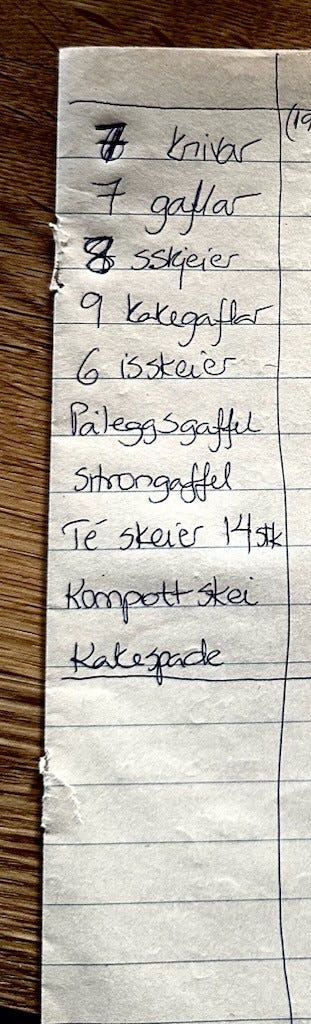 7 knivar
7 gaflar
8 sskjeier
9 kakegaflar
6 isskeier
Påleggsgaffel
Sitrongaffel
Té skeier 14 stk
Kompott skei
Kakespade